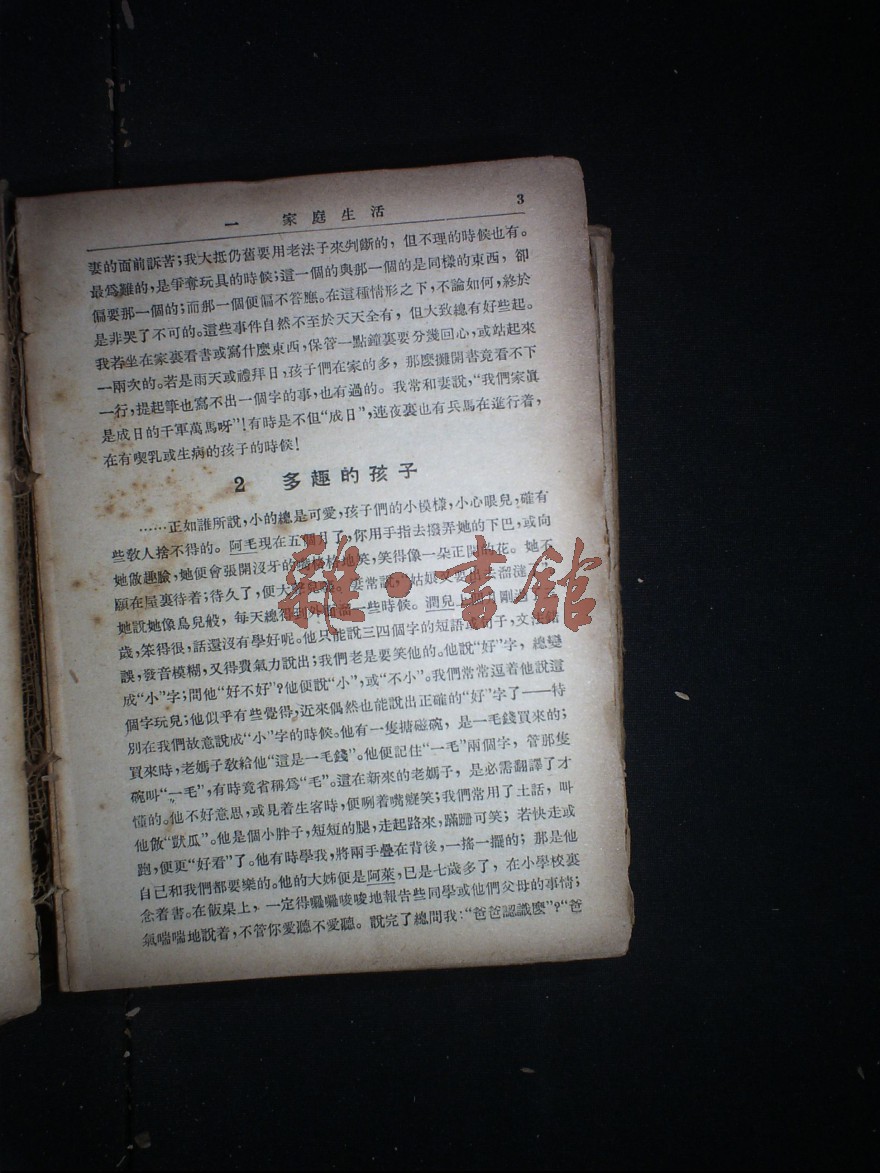 一 家庭生活 3
妻的面前訴苦;我大抵仍舊要用老法子來判斷的,但不理的時候也有。
最爲難的,是爭奪玩具的時候;這一個的與那一個的是同樣的東西,卻
偏要那一個的;而那一個便偏不答應。在這種情形之下,不論如何,終於
是非哭了不可的。這些事件自然不至於天天全有,但大致總有好些起。
我若坐在家裏看書或寫什麼東西,保管一點鐘裏要分幾回心,或站起來
一兩次的。若是雨天或禮拜日,孩子們在家的多,那麼攤開書竟看不下
一行,提起筆也寫不出一個字的事,也有過的。我常和妻說,“我們家眞
是成日的千軍萬馬呀”!有時是不但“成日”,連夜裏也有兵馬在進行着,
在有喫乳或生病的孩子的時候!
2 多趣的孩子
……正如誰所說,小的總是可愛,孩子們的小模樣,小心眼兒,確有
些教人捨不得的。阿毛現在五個月了,你用手指去撥弄她的下巴,或向
她做趣臉,她便會張開沒牙的嘴格格地笑,笑得像一朵正開的花。她不
願在屋裏待着;待久了,便大聲兒嚷。妻常說,“姑娘又要出去溜達
她說她像鳥兒般,每天總得到外面溜一些時候。潤兒上個月剛過
歲,笨得很,話還沒有學好呢。他只能說三四個字的短語或句子,文法錯
誤,發音模糊,又得費氣力說出;我們老是要笑他的。他說“好”字,總變
成“小”字;問他“好不好”?他便說“小”,或“不小”。我們常常逗着他說這
個字玩兒;他似乎有些覺得,近來偶然也能說出正確的“好”字了——特
別在我們故意說成“小”字的時候。他有一隻搪磁碗,是一毛錢買來的;
買來時,老媽子教給他“這是一毛錢”。他便記住“一毛”兩個字,管那隻
碗叫“一毛”,有時竟省稱爲“毛”。這在新來的老媽子,是必需翻譯了才
懂的。他不好意思,或見着生客時,便咧着嘴癡笑;我們常用了土話,叫
他做“獃瓜”。他是個小胖子,短短的腿,走起路來,蹣跚可笑;若快走或
跑,便更“好看”了。他有時學我,將兩手疊在背後,一搖一擺的;那是他
自己和我們都要樂的。他的大姊便是阿菜,已是七歲多了,在小學校裏
念着書。在飯桌上,一定得囉囉唆唆地報告些同學或他們父母的事情;
氣喘喘地說着,不管你愛聽不愛聽。說完了總問我:“爸爸認識麼”?“爸
雜·書館